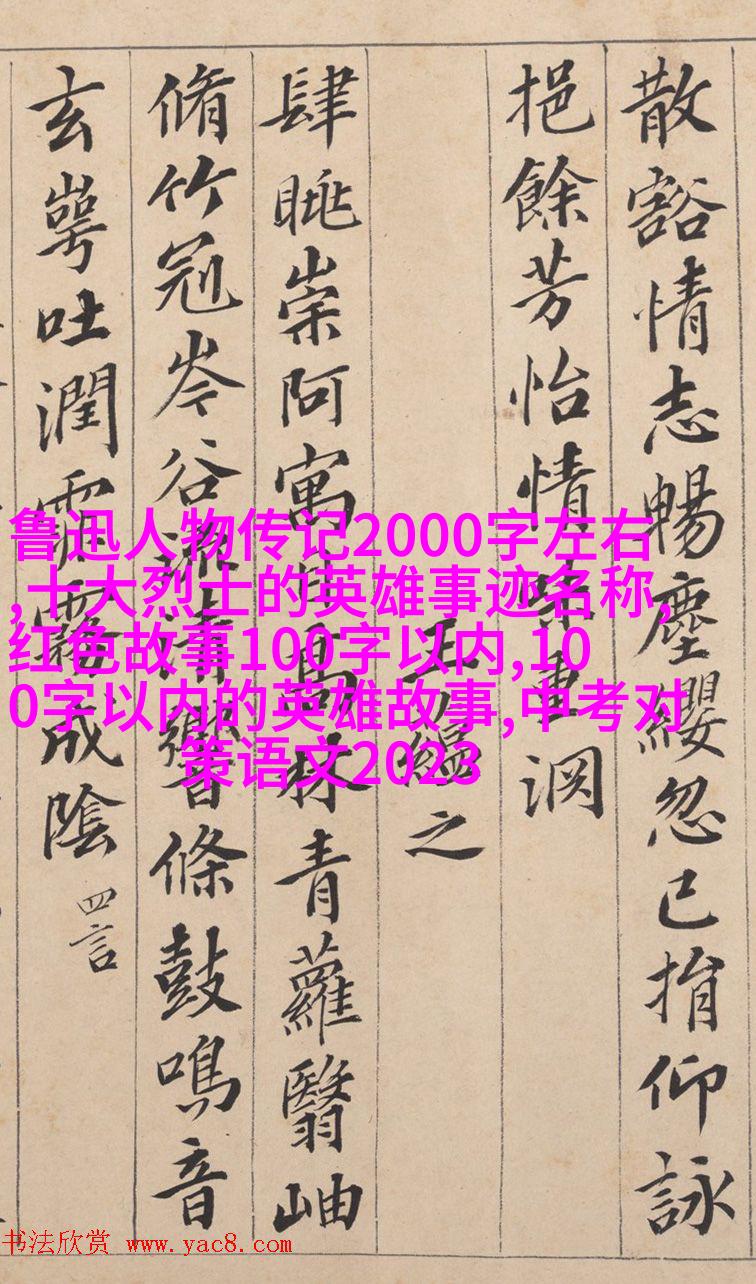 散豁情志暢塵纓忽已捐仰詠
挹餘芳怡情味重淵
王蘊之
肆眺崇阿寓目高林青蘿翳岫
脩竹冠岑谷流清響條鼓鳴音
玄崿吐潤霏霧成陰 四言
鲁迅人物传记2000字左右
,十大烈士的英雄事迹名称,
红色故事100字以内,10
0字以内的英雄故事,中考对
策语文2023
书法欣赏 www.yac8.com